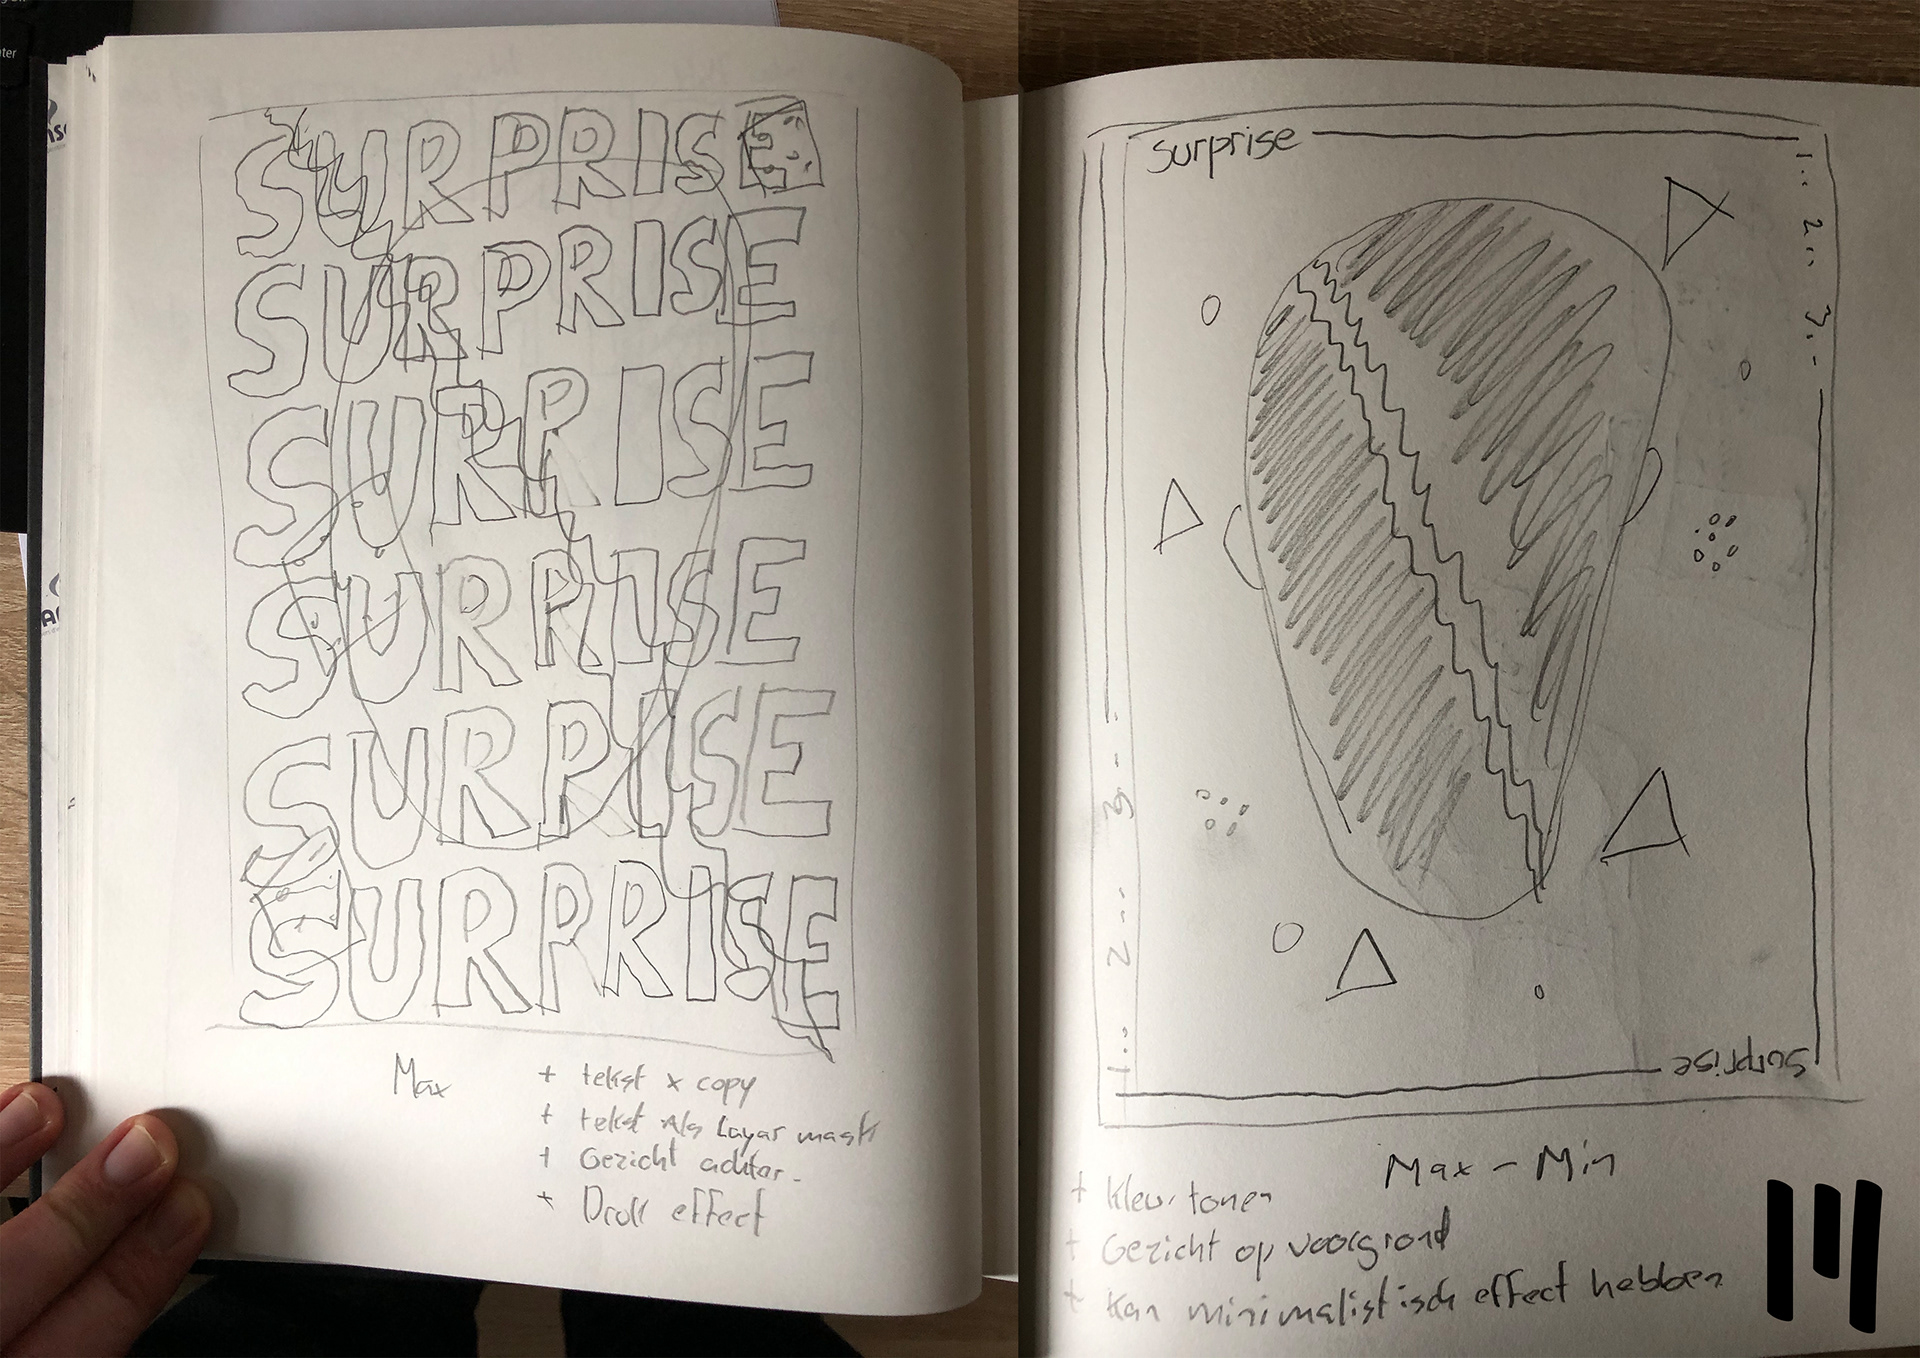 SURPRISE
SURPRISE
SURPRISE
SURPRISE
SURPRISE
SURPRISE
Max
+ tekst x copy
+ tekst Als Layar mask
+ Gezicht achter.
+ effect
surprise
1.. 2.. 3..
1.. 2... 3...
surprise
Max - Min
+ kleurtonen
+ Gezicht op voorgrond
+ Kan minimalistisch effect hebben